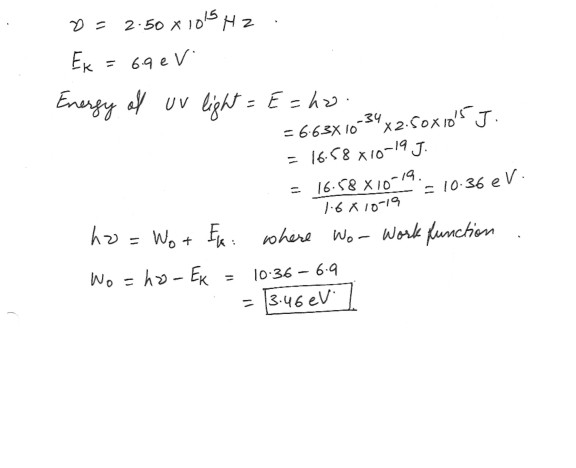 ν = 2.50 × 10¹⁵ Hz.
E_K = 6.9 eV.
Energy of UV light = E = hν.
= 6.63 × 10⁻³⁴ × 2.50 × 10¹⁵ J.
= 16.58 × 10⁻¹⁹ J.
= 16.58 × 10⁻¹⁹ / 1.6 × 10⁻¹⁹ = 10.36 eV.
hν = W₀ + E_K. where W₀ – Work function.
W₀ = hν – E_K = 10.36 – 6.9
= 3.46 eV.